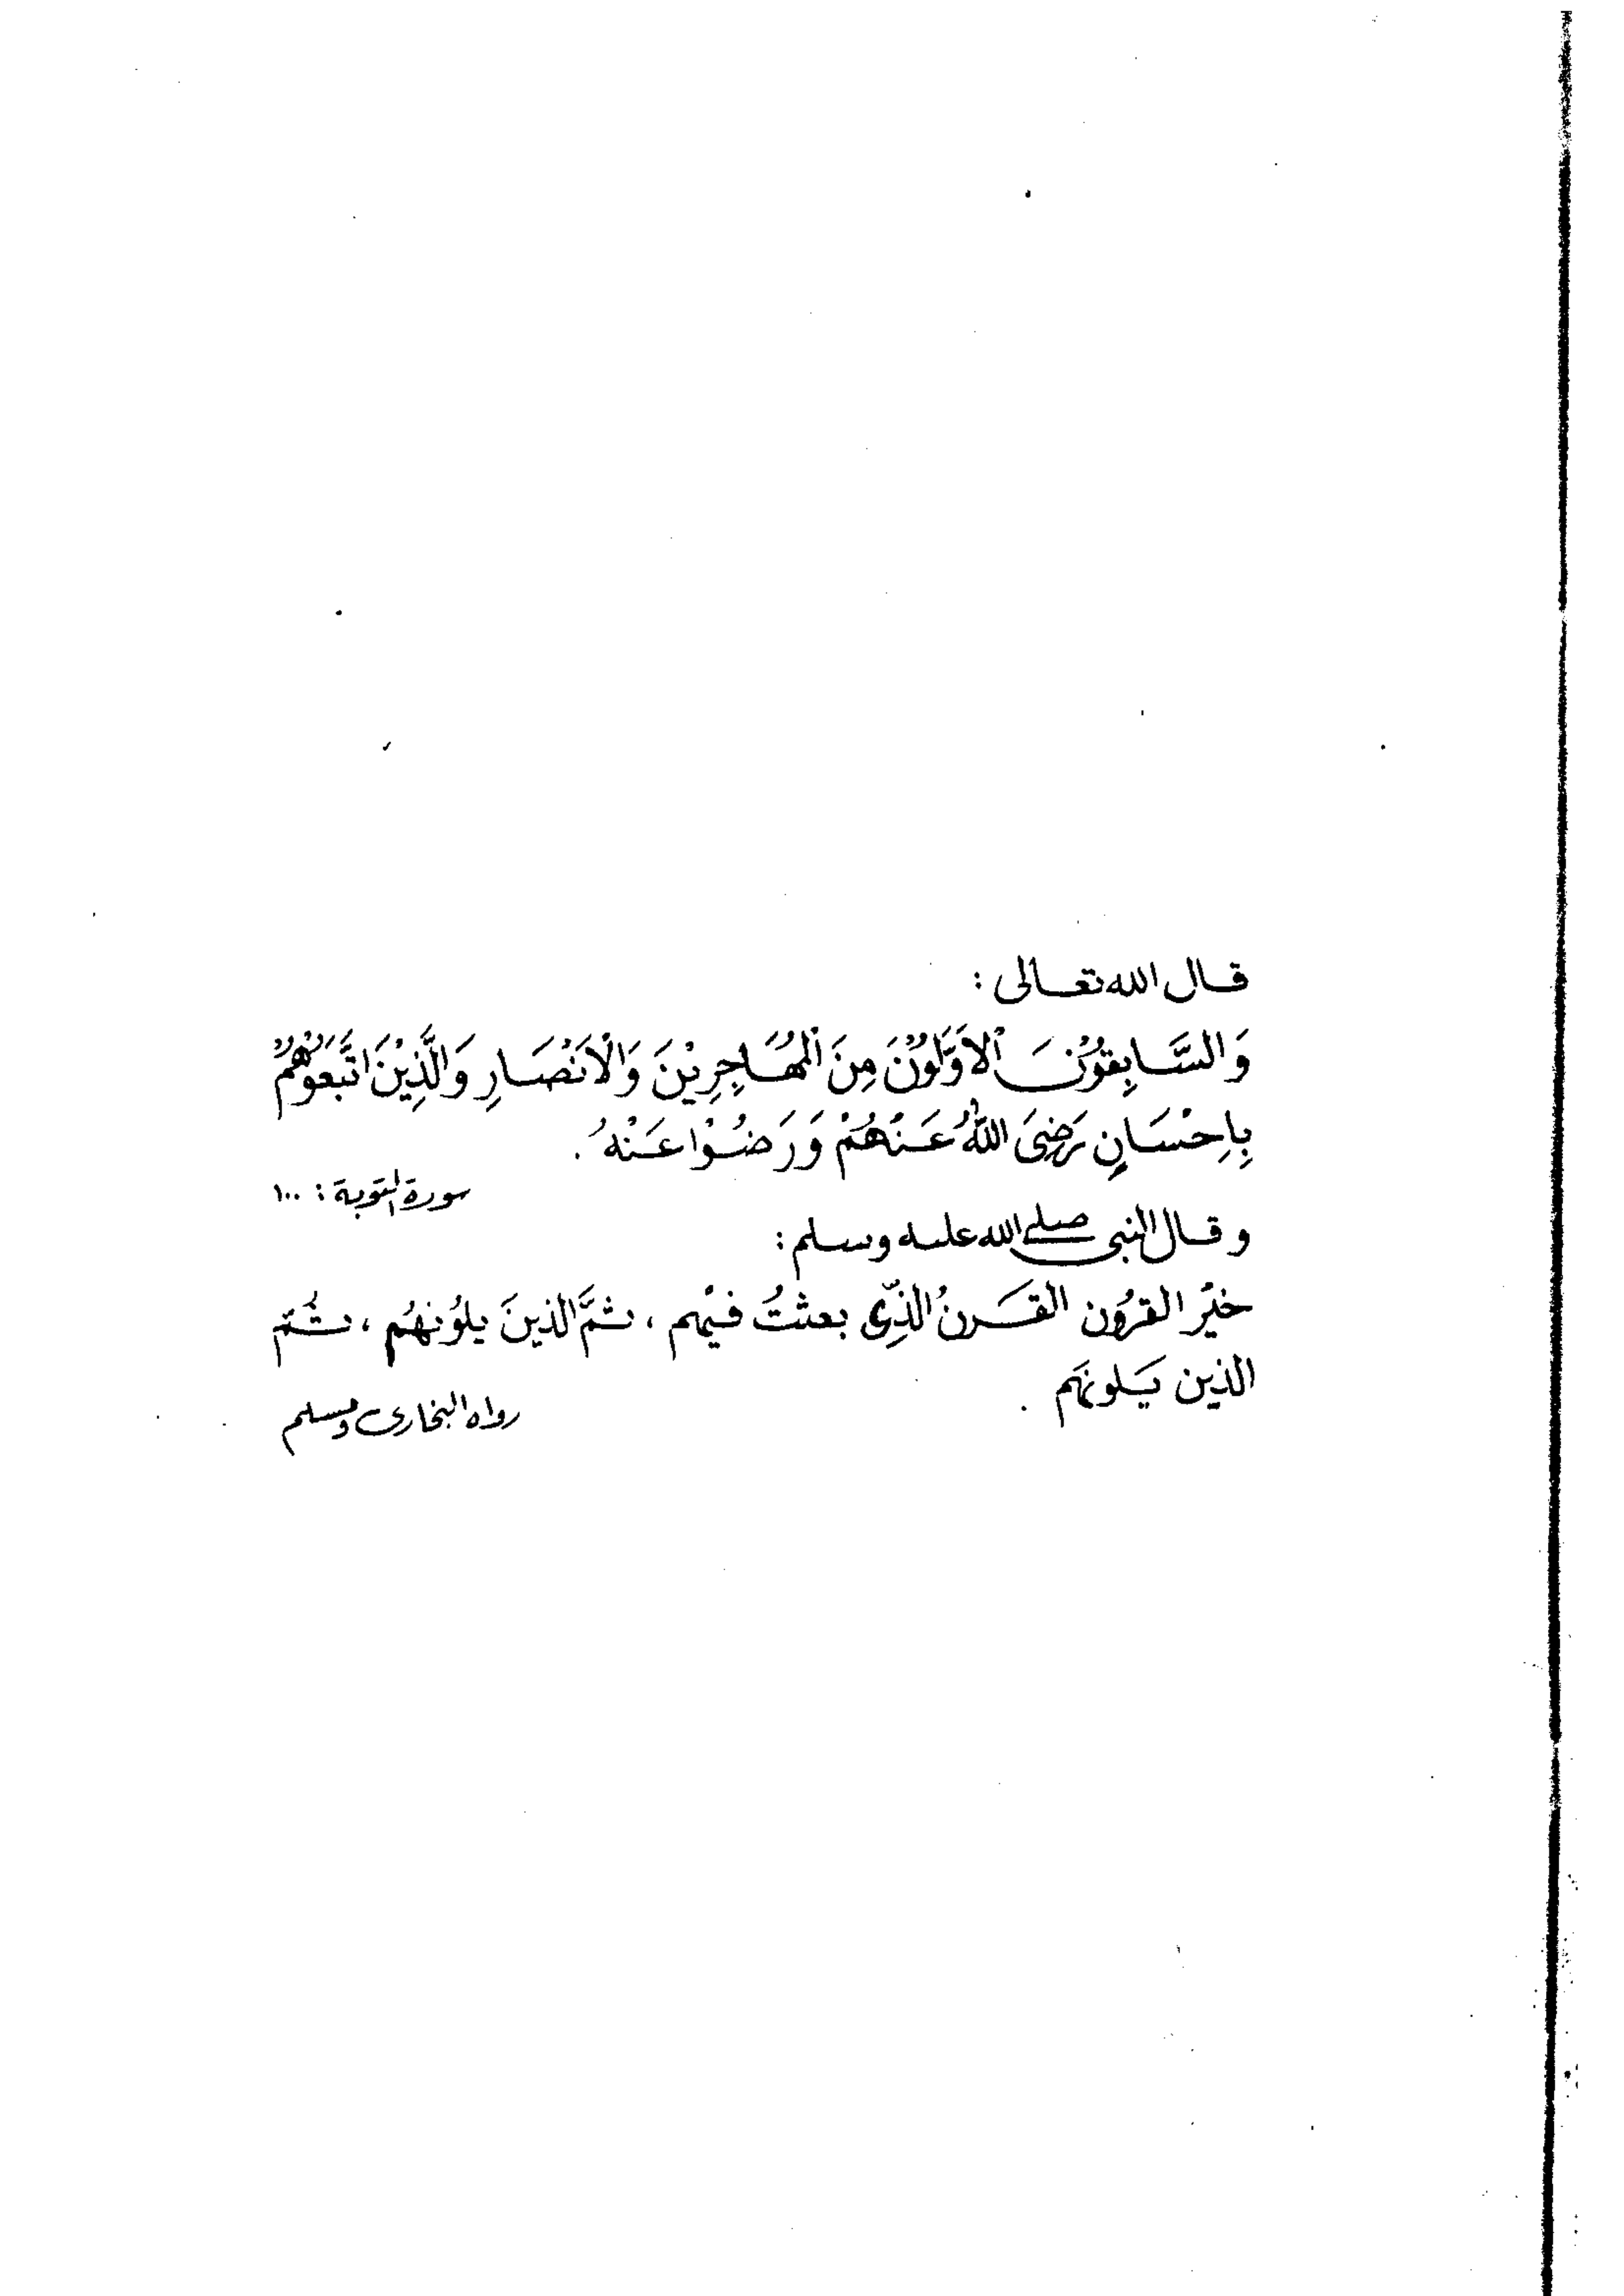 قال الله تعالى :
وَالسَّابِقُوْنَ الْاَوَّلُوْنَ مِنَ الْمُهَاجِرِيْنَ وَالْاَنْصَارِ وَالَّذِيْنَ اتَّبَعُوْهُمْ
بِاِحْسَانٍ رَضِىَ اللّٰهُ عَنْهُمْ وَرَضُوْا عَنْهُ .
سورة التوبة : ١٠٠
و قال النبى صلى الله عليه وسلم :
خيْر القرُون القَرنُ الذِّى بعثتُ فيْهم ، ثمَّ الذينَ يلوُنهُم ، ثُمّ
الذين يَلونهَم .
رواه البخارى ومسلم